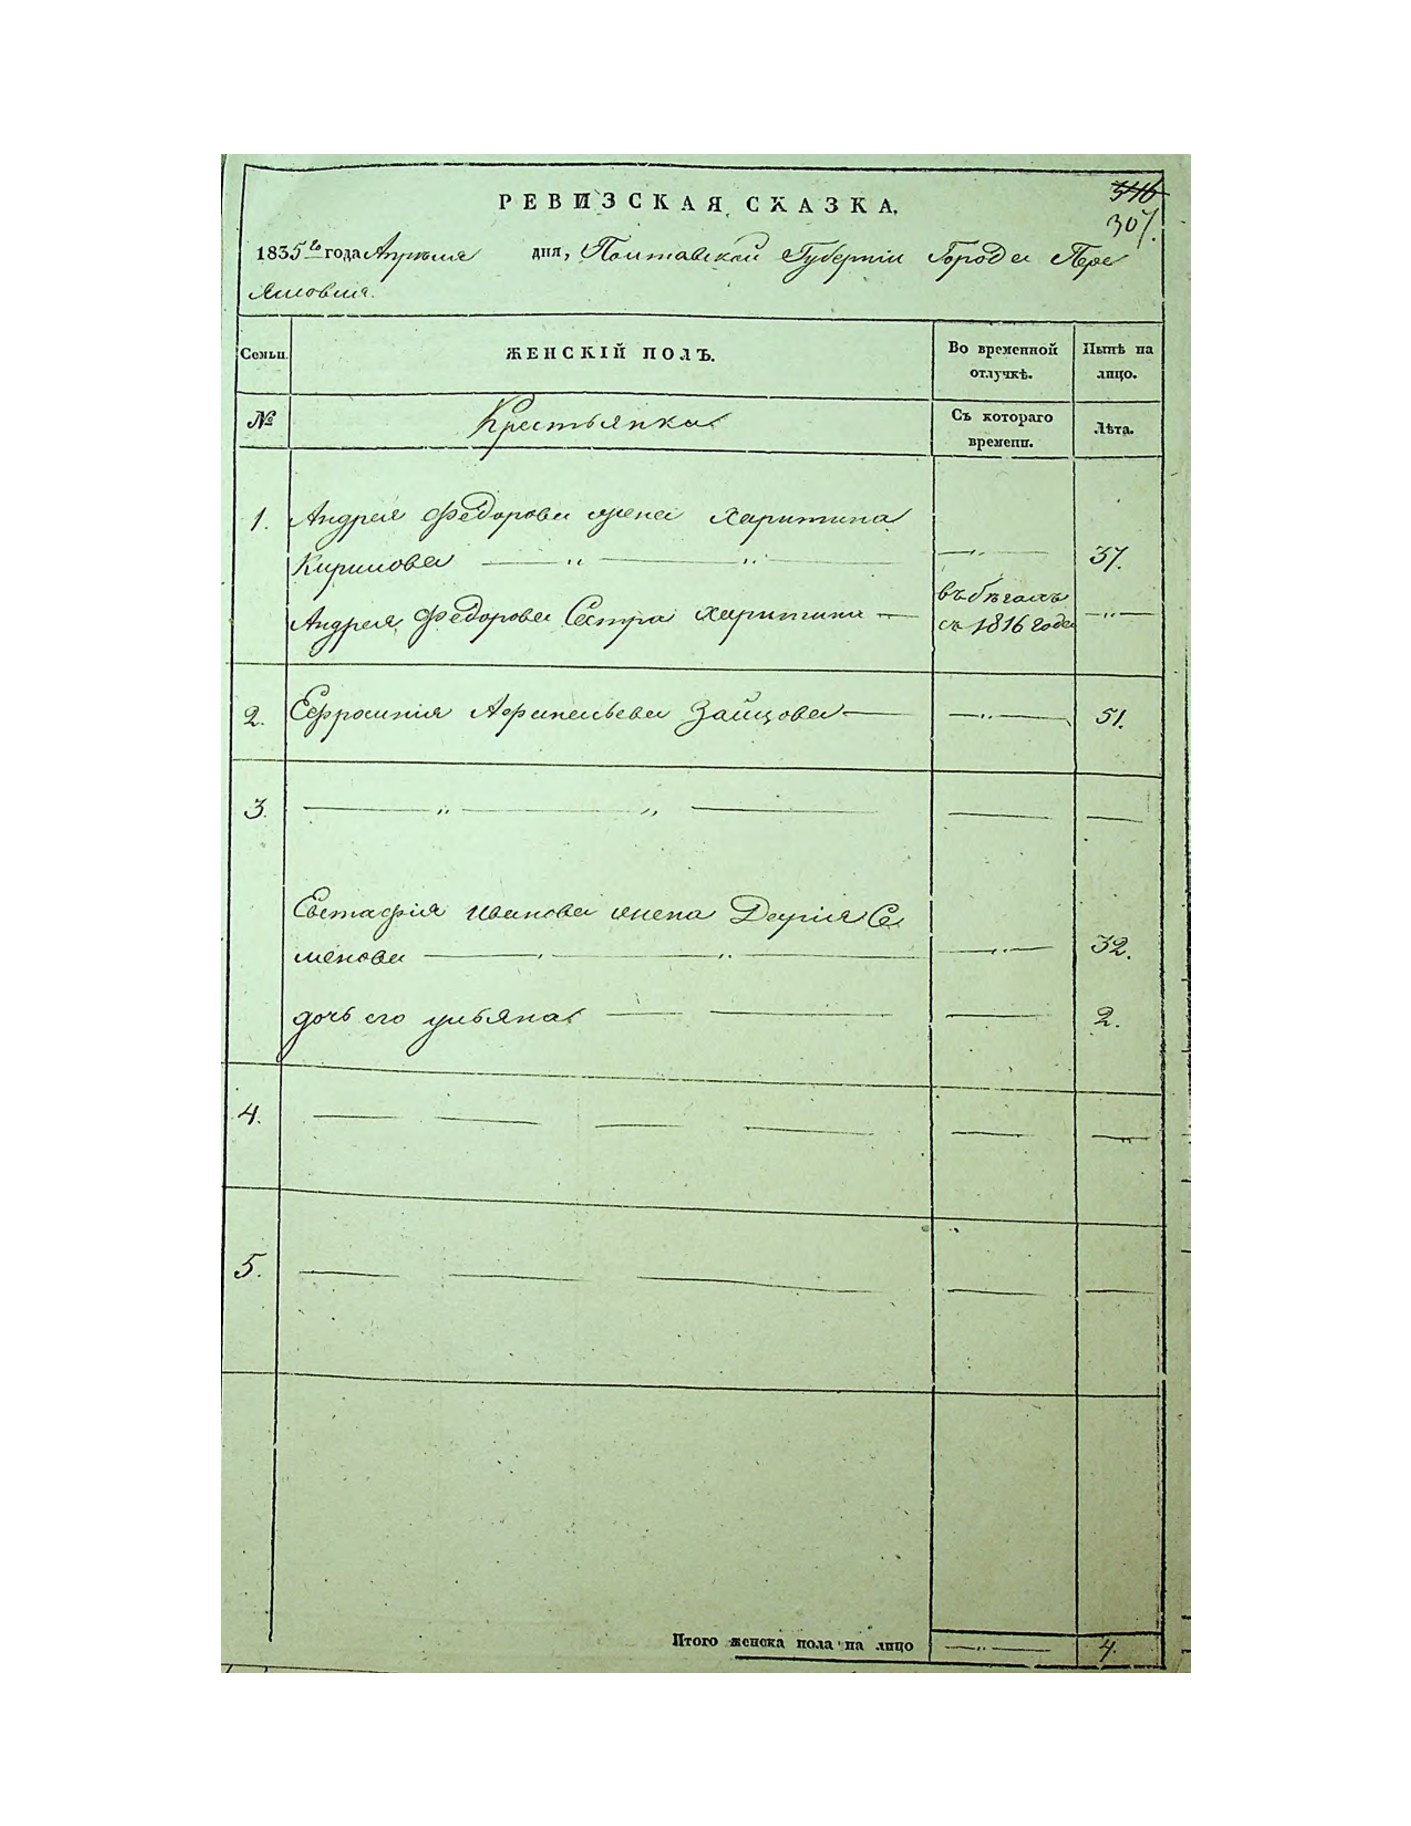 РЕВИЗСКАЯ СКАЗКА.
346
307.
1835го года Апреля дня, Полтавской Губернiи Города Пере
яславля.
Семьи. ЖЕНСКIЙ ПОЛЪ. Во временной отлучкѣ. Нынѣ на лицо.
№ Крестьянка Съ котораго времени. Лѣта.
1. Андрея Федорова жена Харитина
Кирилова — „ — „ — — „ — 37.
Андрея Федорова Сестра Харитина — въ бѣгахъ съ 1816 года — „ —
2. Ефросинiя Афанасьева Зайцова — — „ — 51.
3. — „ — „ — — —
Евстафiя Иванова жена Дарiя Се
менова — „ — „ — — „ — 32.
дочь его ульяна — — — 2.
4. — — — — — —
5. — — — — —
Итого женска пола на лицо — „ — 4.